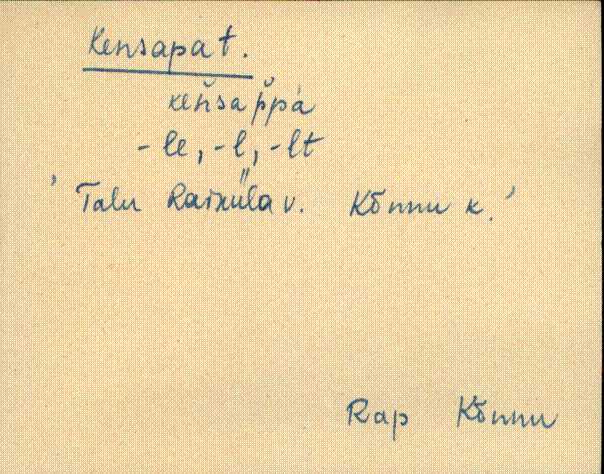 Kensapa t.
keňsa p̌pà
-le, -l, -lt
' Talu Raikküla v. Kõnnu k.'
Rap Kõnnu